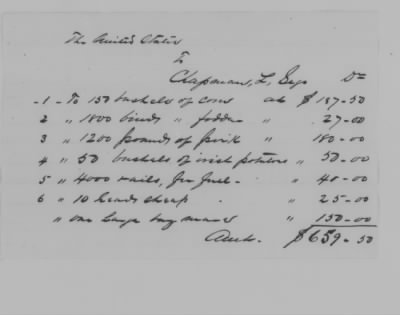 The United States
To
Chapman, L, Exps Dr
1 - To 150 bushels of corn at $187-50
2 " 1800 binds " fodder " 27-00
3 " 1200 pounds of pork " 180-00
4 " 50 bushels of irish potatoes " 50-00
5 " 4000 rails, for fuel - " 40-00
6 " 10 heads sheap " 25-00
" one large bay mare " 150-00
Amt. $659-50